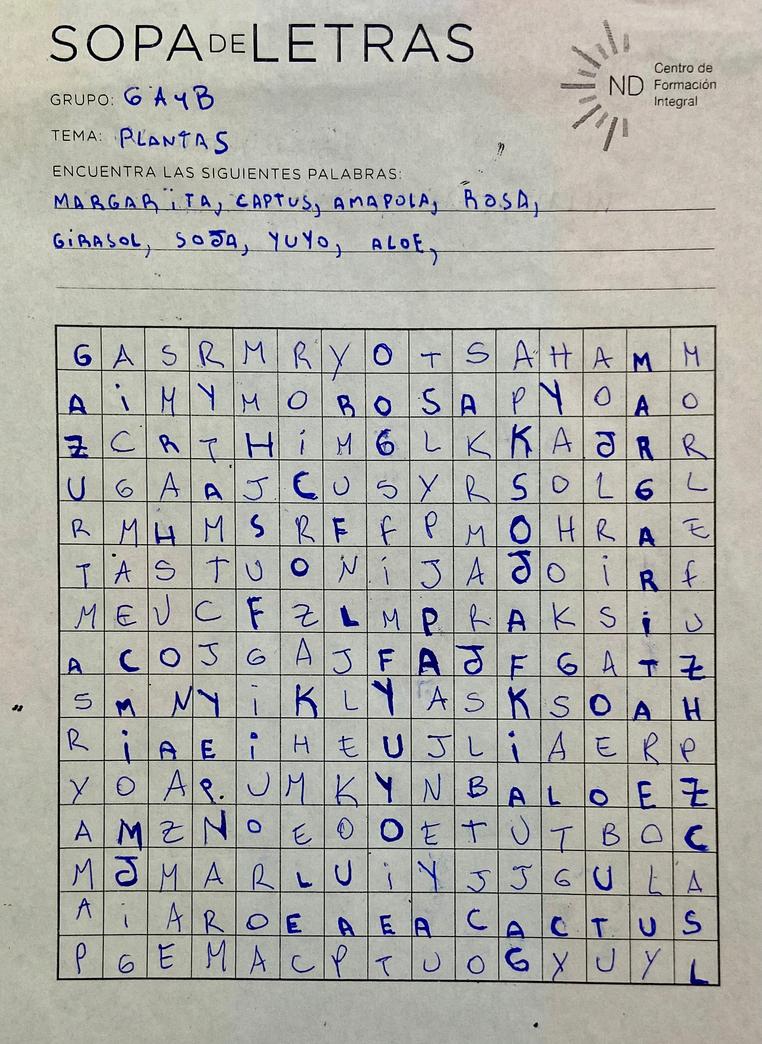 SOPA DE LETRAS
ND Centro de
Formación
Integral
GRUPO: 6 A y B
TEMA: PLANTAS
ENCUENTRA LAS SIGUIENTES PALABRAS:
MARGARITA, CAPTUS, AMAPOLA, ROSA,
GIRASOL, SOJA, YUYO, ALOE,
G A S R M R Y O T S A H A M M
A i M Y M O R O S A P Y O A O
Z C R T H i M G L K K A J R R
U G A A J C U S Y R S O L G L
R M H M S R F F P M O H R A E
T A S T U O N i J A J O i R F
M E U C F Z L M P R A K S i U
A C O J G A J F A J F G A T Z
S M N Y i K L Y A S K S O A H
R i A E i H E U J L i A E R P
Y O A P. U M K Y N B A L O E Z
A M Z N O E O O E T U T B O C
M J M A R L U i Y J J G U L A
A i A R O E A E A C A C T U S
P G E M A C P T U O G Y U Y L